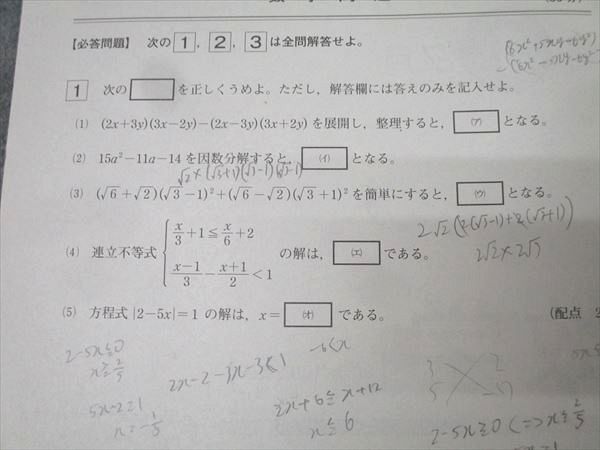 【必答問題】 次の 1 , 2 , 3 は全問解答せよ。
(6x²+5xy-6y²)
-(6x²-5xy-6y²)
1 次の□を正しくうめよ。ただし，解答欄には答えのみを記入せよ。
(1) (2x+3y)(3x-2y)-(2x-3y)(3x+2y) を展開し，整理すると， (ア) となる。
(2) 15a²-11a-14 を因数分解すると， (イ) となる。
√2×(√3+1)(√3-1)(√3-1)
(3) (√6+√2)(√3-1)²+(√6-√2)(√3+1)² を簡単にすると， (ウ) となる。
2√2(
(√3-1)+
(√3+1))
2√2×2√3
(4) 連立不等式 { x/3+1≦x/6+2
(x-1)/3-(x+1)/2<1 の解は， (エ) である。
(5) 方程式 |2-5x|=1 の解は，x= (オ) である。
(配点 2
2-5x≧0
x≧2/5
5x-2=1
2x-2-3x-3
1
-6<x
2x+6≦x+12
x≦6
3 2
5
2-5x≧0 (⇔x≧2/5